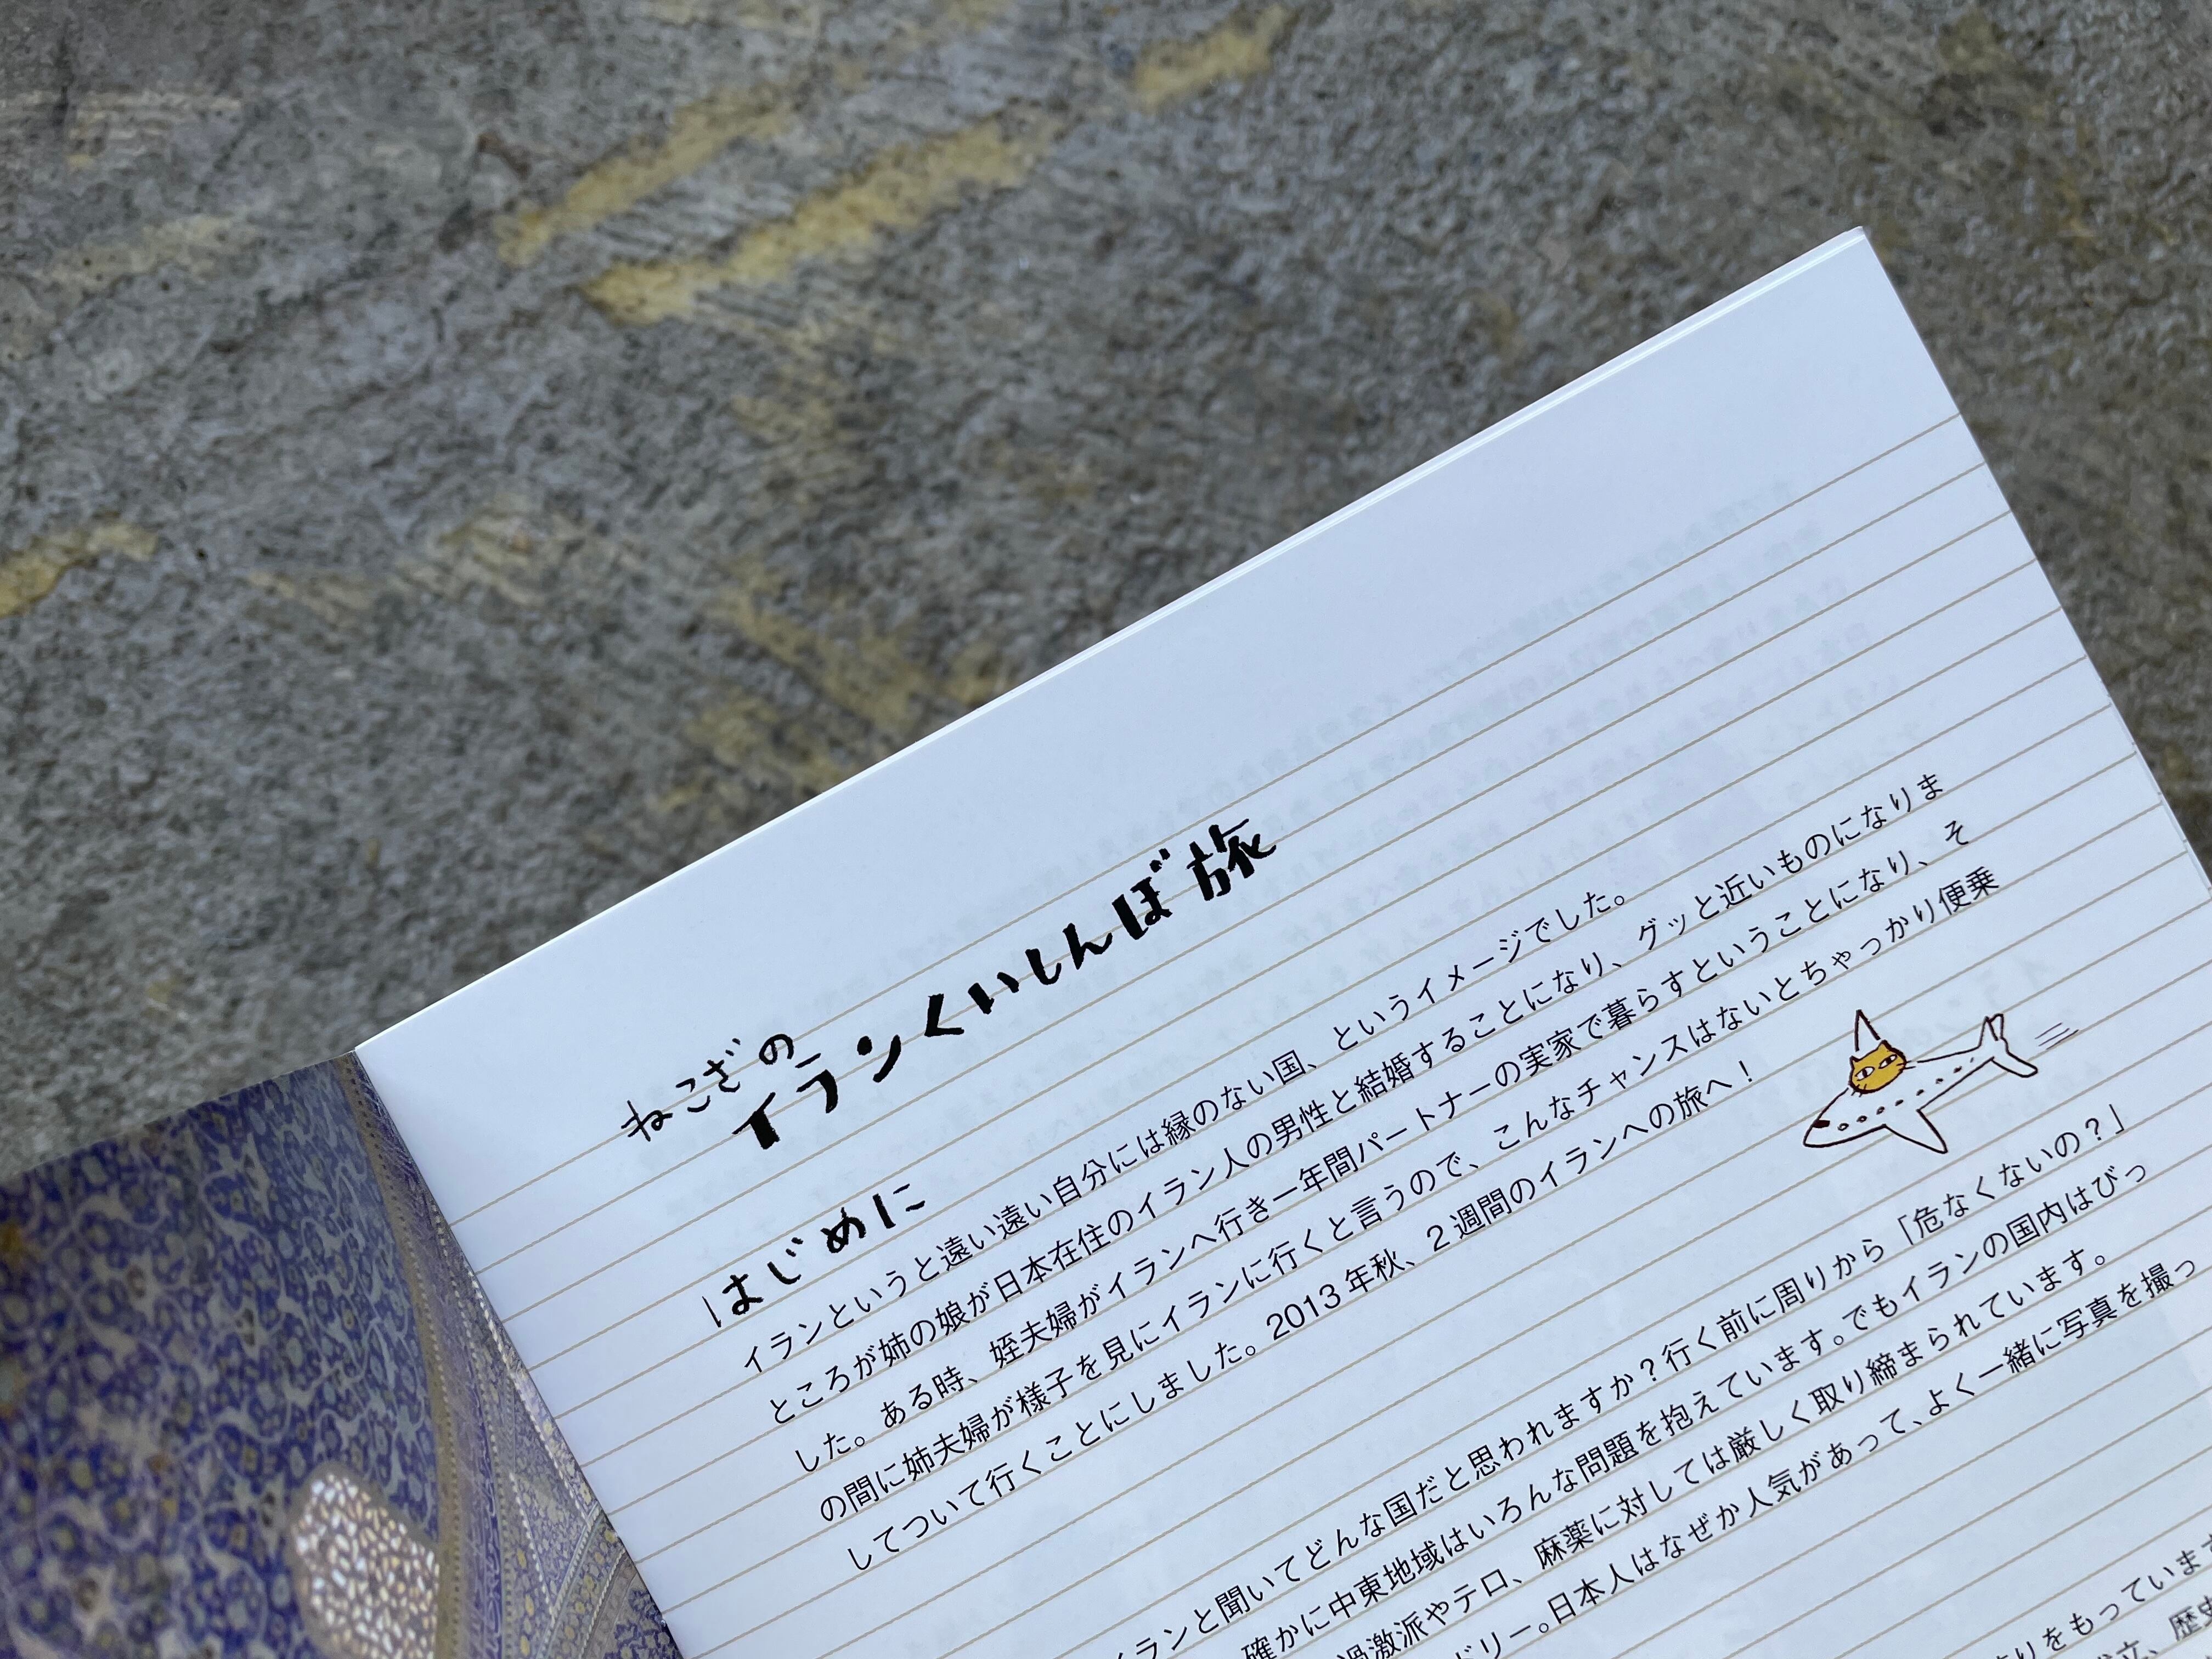 ねこざの
イランくいしんぼ旅
はじめに
イランというと遠い遠い自分には縁のない国、というイメージでした。
ところが姉の娘が日本在住のイラン人の男性と結婚することになり、グッと近いものになりま
した。ある時、姪夫婦がイランへ行き一年間パートナーの実家で暮らすということになり、そ
の間に姉夫婦が様子を見にイランに行くと言うので、こんなチャンスはないとちゃっかり便乗
してついて行くことにしました。2013年秋、2週間のイランへの旅へ！
イランと聞いてどんな国だと思われますか？行く前に周りから「危なくないの？」
確かに中東地域はいろんな問題を抱えています。でもイランの国内はびっ
過激派やテロ、麻薬に対しては厳しく取り締まられています。
ドリー。日本人はなぜか人気があって、よく一緒に写真を撮っ
りをもっています
立、歴史